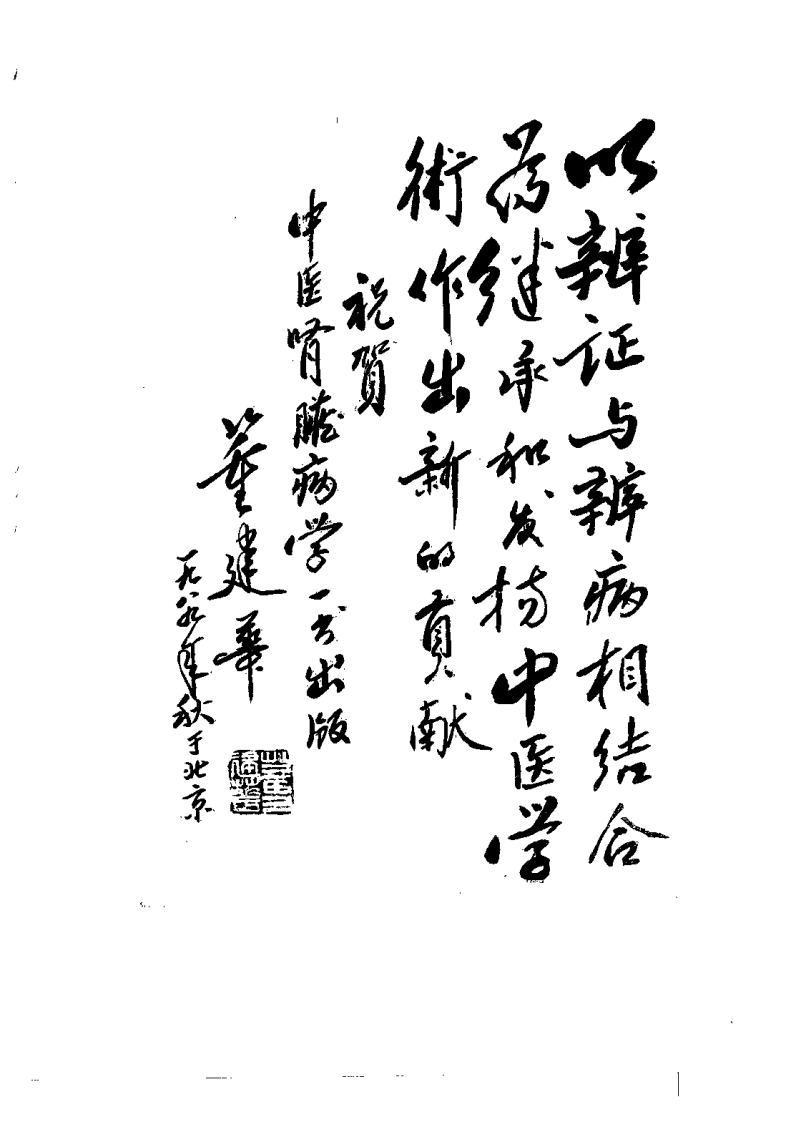 以辨证与辨病相结合
为继承和发扬中医学
術作出新的貢献
祝賀
中医腎臟病学一书出版
董建華
一九八九年秋于北京